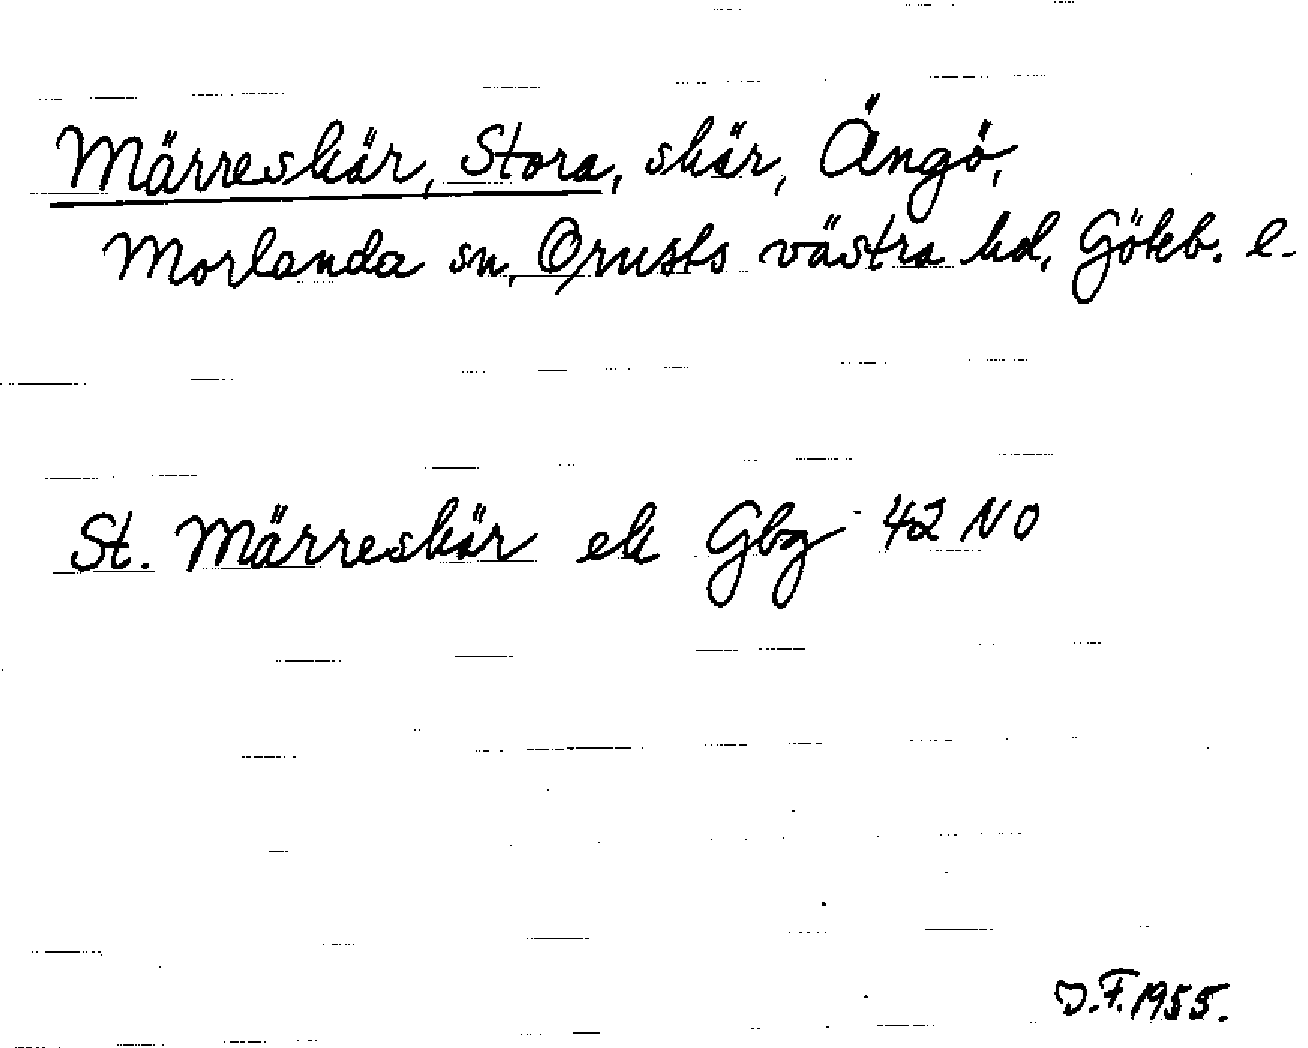 Märreskär, Stora, skär, Ängö,
Morlanda sn, Orusts västra hd, Göteb. l.
St. Märreskär ek Gbg 42 NO
D.F. 1955.